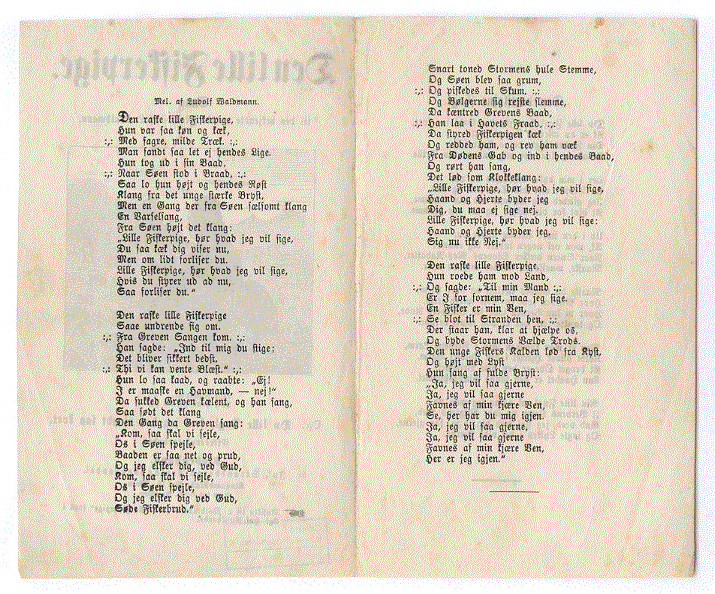 Mel. af Ludolf Waldmann.
Den raske lille Fiskerpige,
Hun var saa køn og kæk,
:,: Med fagre, milde Træk. :,:
Man sandt saa let ej hendes Lige.
Hun tog ud i sin Baad,
:,: Naar Søen stod i Braad. :,:
Saa lo hun højt og hendes Røst
Klang fra det unge stærke Bryst,
Men en Gang der fra Søen sælsomt klang
En Varselsang,
Fra Søen højt det klang:
„Lille Fiskerpige, hør hvad jeg vil sige,
Du saa kæk dig viser nu,
Men om lidt forliser du.
Lille Fiskerpige, hør hvad jeg vil sige,
Hvis du styrer ud ad nu,
Saa forliser du.“
Den raske lille Fiskerpige
Saae undrende sig om.
:,: Fra Greven Sangen kom. :,:
Han sagde: „Ind til mig du stige;
Det bliver sikkert bedst,
:,: Thi vi kan vente Blæst.“ :,:
Hun lo saa kaad, og raabte: „Ej!
I er maaske en Havmand, — nej!“
Da sukked Greven kælent, og han sang,
Saa sødt det klang
Den Gang da Greven sang:
„Kom, saa skal vi sejle,
Os i Søen spejle,
Baaden er saa net og prud,
Og jeg elsker dig, ved Gud,
Kom, saa skal vi sejle,
Os i Søen spejle,
Og jeg elsker dig ved Gud,
Søde Fiskerbrud.“
Snart toned Stormens hule Stemme,
Og Søen blev saa grum,
:,: Og piskedes til Skum. :,:
Og Bølgerne sig rejste slemme,
Da kæntred Grevens Baad,
:,: Han laa i Havets Fraad, :,:
Da styred Fiskerpigen kæk
Og redded ham, og rev ham væk
Fra Dødens Gab og ind i hendes Baad,
Og rørt han sang,
Det lød som Klokkeklang:
„Lille Fiskerpige, hør hvad jeg vil sige,
Haand og Hjerte byder jeg
Dig, du maa ej sige nej.
Lille Fiskerpige, hør hvad jeg vil sige:
Haand og Hjerte byder jeg,
Sig nu ikke Nej.“
Den raske lille Fiskerpige
Hun roede ham mod Land,
:,: Og sagde: „Til min Mand :,:
Er I for fornem, maa jeg sige.
En Fisker er min Ven,
:,: Se blot til Stranden hen, :,:
Der staar han, klar at hjælpe os,
Og byde Stormens Vælde Trods.
Den unge Fiskers Kalden lød fra Kyst,
Og højt med Lyst
Hun sang af fulde Bryst:
„Ja, jeg vil saa gjerne,
Ja, jeg vil saa gjerne
Favnes af min kjære Ven,
Se, her har du mig igjen.
Ja, jeg vil saa gjerne,
Ja, jeg vil saa gjerne
Favnes af min kjære Ven,
Her er jeg igjen.“